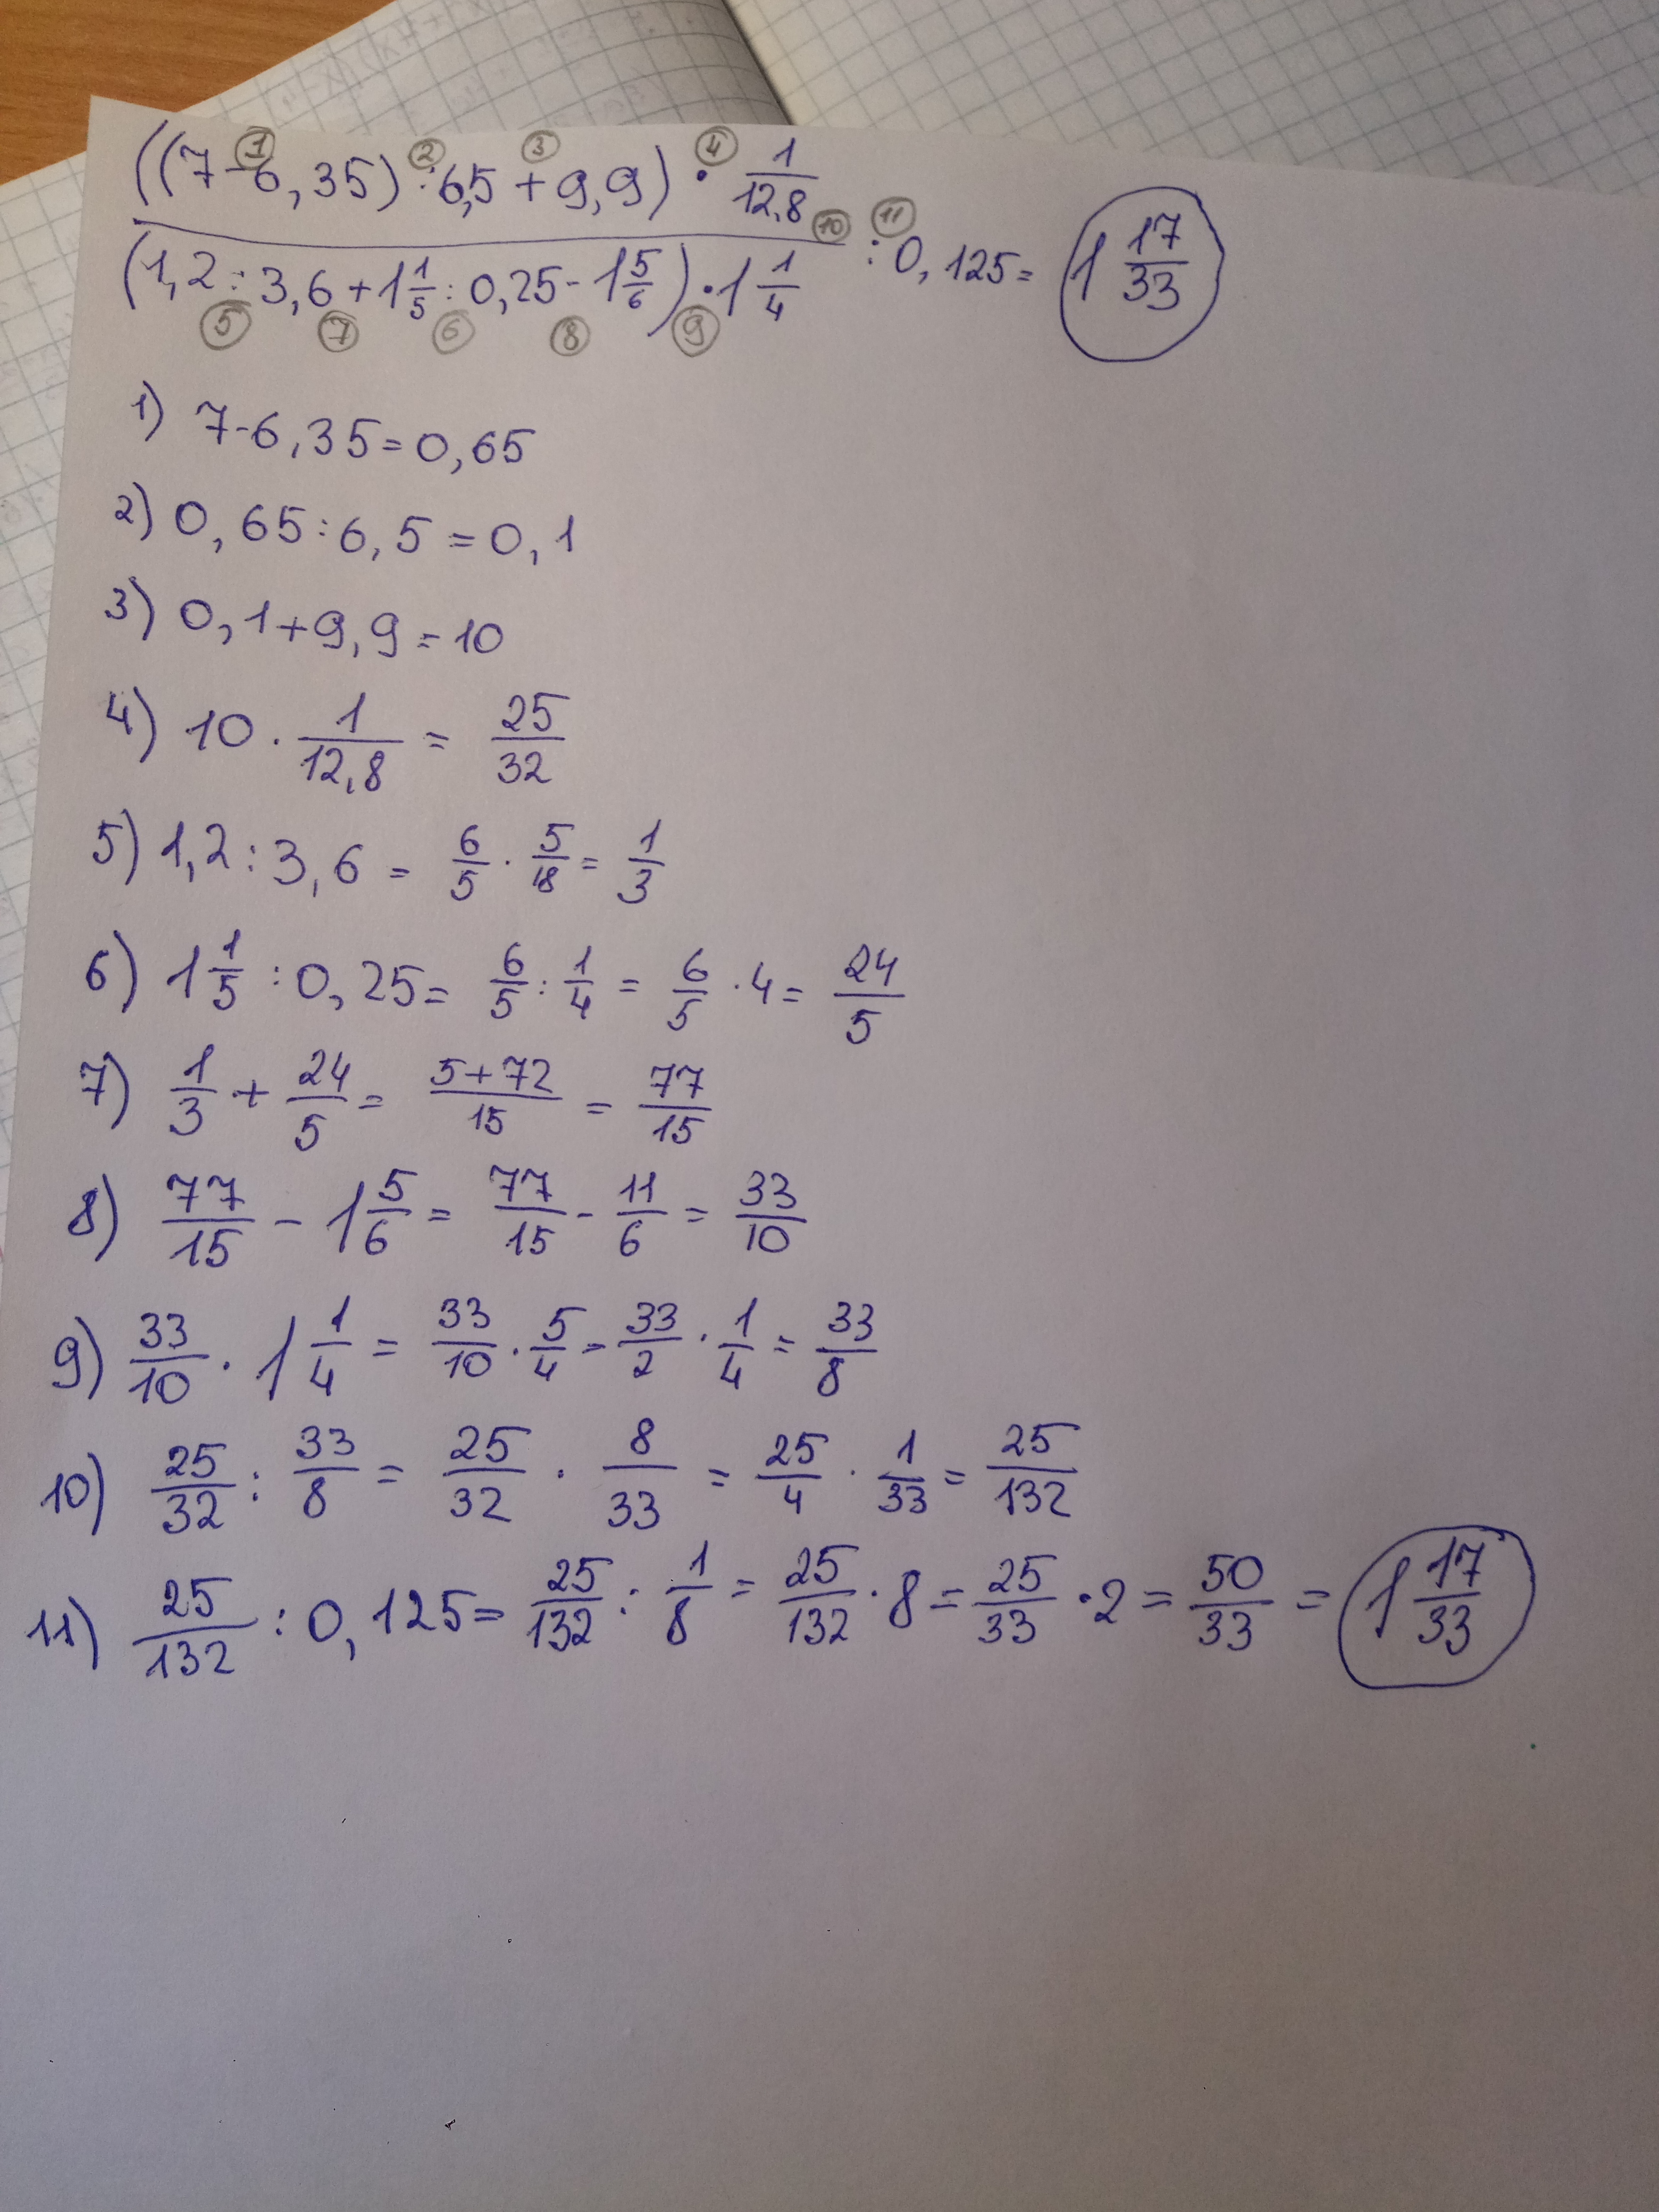 ① ② ③ ④
((7-6,35):6,5+9,9)·1/12,8
⑩ ⑪
(1,2:3,6+1 1/5:0,25-1 5/6)·1 1/4 :0,125= 1 17/33
⑤ ⑦ ⑥ ⑧ ⑨
1) 7-6,35=0,65
2) 0,65:6,5=0,1
3) 0,1+9,9=10
4) 10·1/12,8=25/32
5) 1,2:3,6=6/5·5/18=1/3
6) 1 1/5:0,25=6/5:1/4=6/5·4=24/5
7) 1/3+24/5=(5+72)/15=77/15
8) 77/15-1 5/6=77/15-11/6=33/10
9) 33/10·1 1/4=33/10·5/4=33/2·1/4=33/8
10) 25/32:33/8=25/32·8/33=25/4·1/33=25/132
11) 25/132:0,125=25/132:1/8=25/132·8=25/33·2=50/33=1 17/33